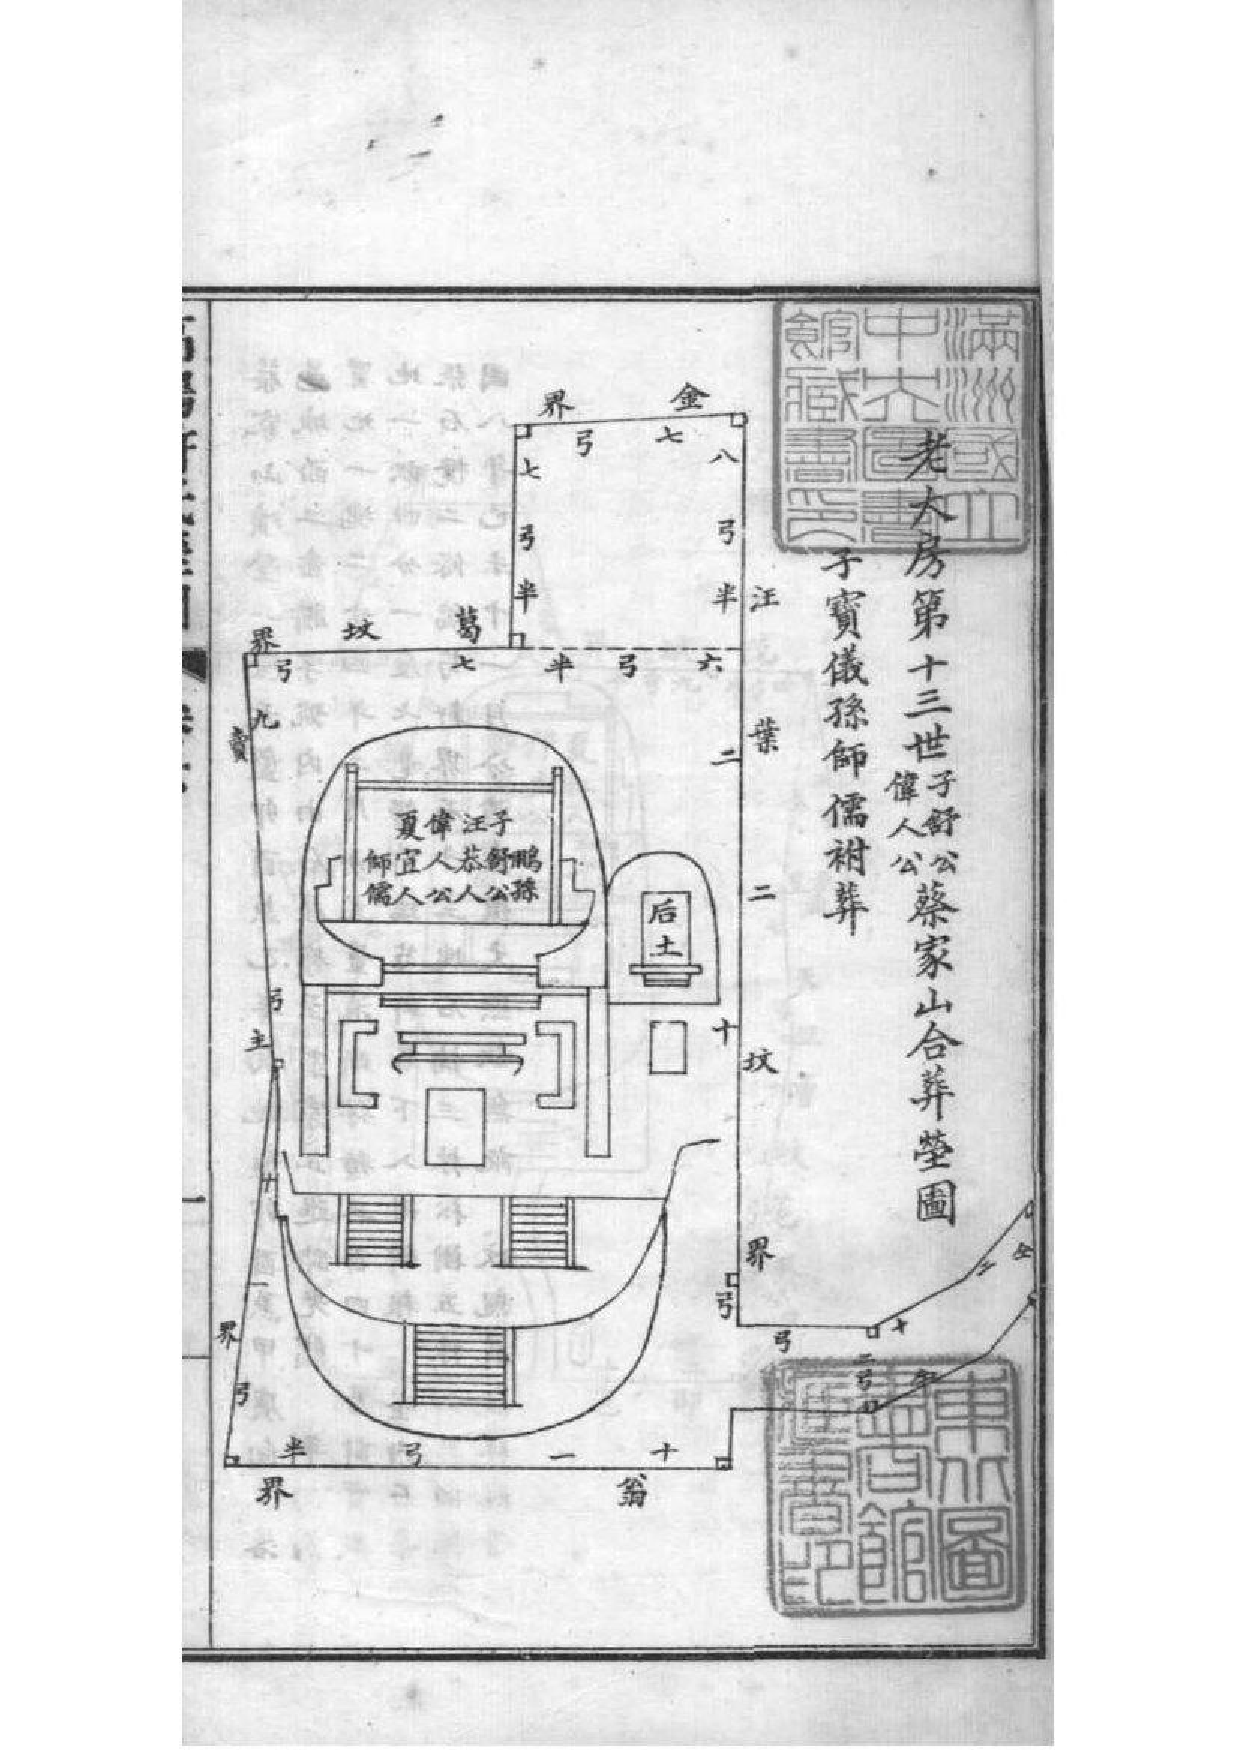 老大房第十三世子舒公偉人公蔡家山合葬塋圖
子寶儀孫師儒祔葬
滿洲國立
中央圖書
館藏書印
東北圖
書館
金界
七弓
八弓半
七弓半
葛坟界
六弓半七弓
汪葉二坟界
二十二弓
九弓
賣主界
十一弓
鵬孫
子舒公
汪恭人
偉人公
夏宜人
師儒
后土
弓
十二
仝
二弓
仝
翁界
十一弓半